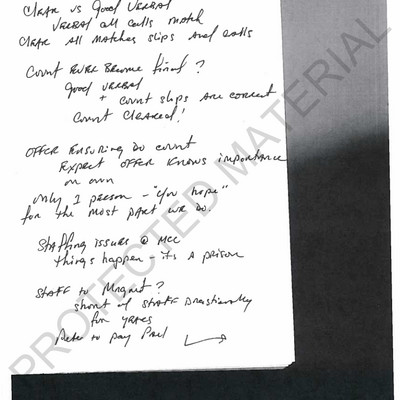 CLEAR VS Good VERBAL
VERBAL all calls match
CLEAR All matches slips and calls
Count EVER Become final?
Good VERBAL
+ count slips are correct
Count CLEARED!
OFFER ENSURING DO count
Expect OFFER knows importance
on own
only 1 person - "you hope"
for the most part we do.
Staffing issues @ MCC
things happen - its A prison
STAFF to Mngmt?
short of STAFF Drastically
for years
Refer to Day
PROTECTED MATERIAL